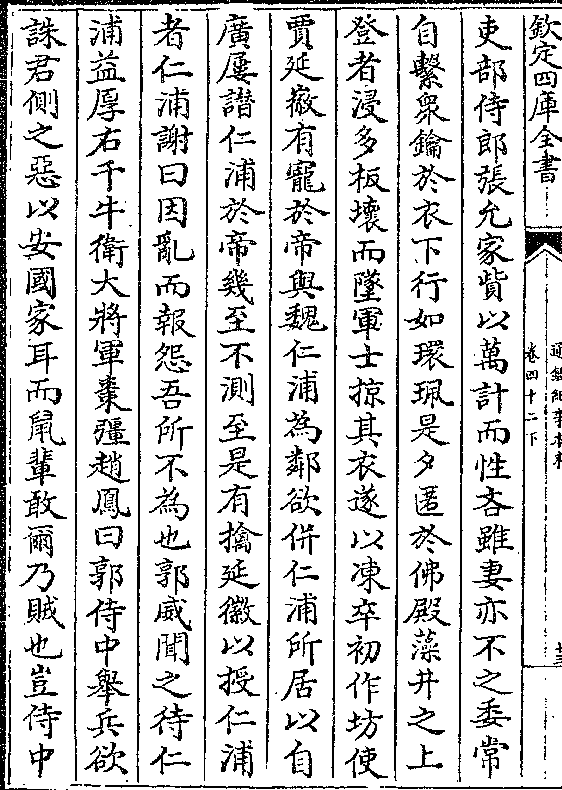 欽定四庫全書
通鑑紀事本末
卷四十二下
吏部侍郎張允家貲以萬計而性吝雖妻亦不之委常
自繫衆鑰於衣下行如環珮是夕匿於佛殿藻井之上
登者浸多板壞而墜軍士掠其衣遂以凍卒初作坊使
賈延徽有寵於帝與魏仁浦為鄰欲併仁浦所居以自
廣屢譖仁浦於帝幾至不測至是有擒延徽以授仁浦
者仁浦謝曰因亂而報怨吾所不為也郭威聞之待仁
浦益厚右千牛衛大將軍棗彊趙鳳曰郭侍中舉兵欲
誅君側之惡以安國家耳而鼠輩敢爾乃賊也豈侍中